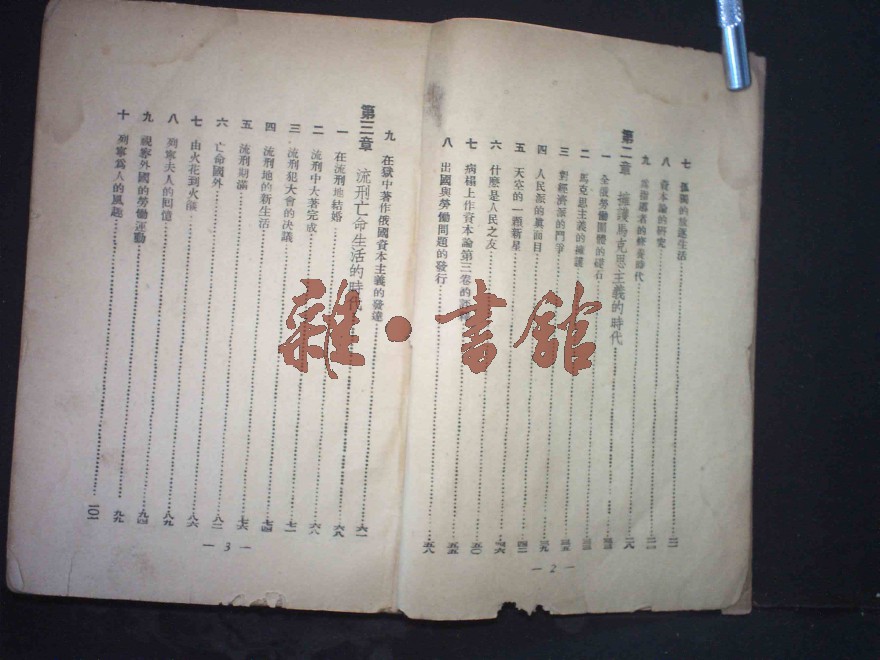 七 孤獨的放逐生活
八 資本論的研究
九 時代
第二章 擁護馬克思主義的時代
一 全俄勞働團體的礎石
二 馬克思主義的擁護
三 對經濟派的鬥爭
四 人民派的眞面目 三九
五 天空的一顆新星 四二
六 什麽是人民之友 四六
七 病榻上作資本論第三卷的 五〇
八 出國與勞働問題的發行 五八
— 2 —
九 在獄中著作俄國資本主義的發達 六一
第三章 流刑亡命生活的時代
一 在流刑地結婚 六九
二 流刑中大著完成 六八
三 流刑犯大會的決議 七一
四 流刑地的新生活 七四
五 流刑期滿 七六
六 亡命國外 八二
七 由火花到火 八六
八 列寧夫人的囘憶 八九
九 視察外國的勞働運動 九四
十 列寧爲人的風 九九
一〇一
— 3 —
雜·書館